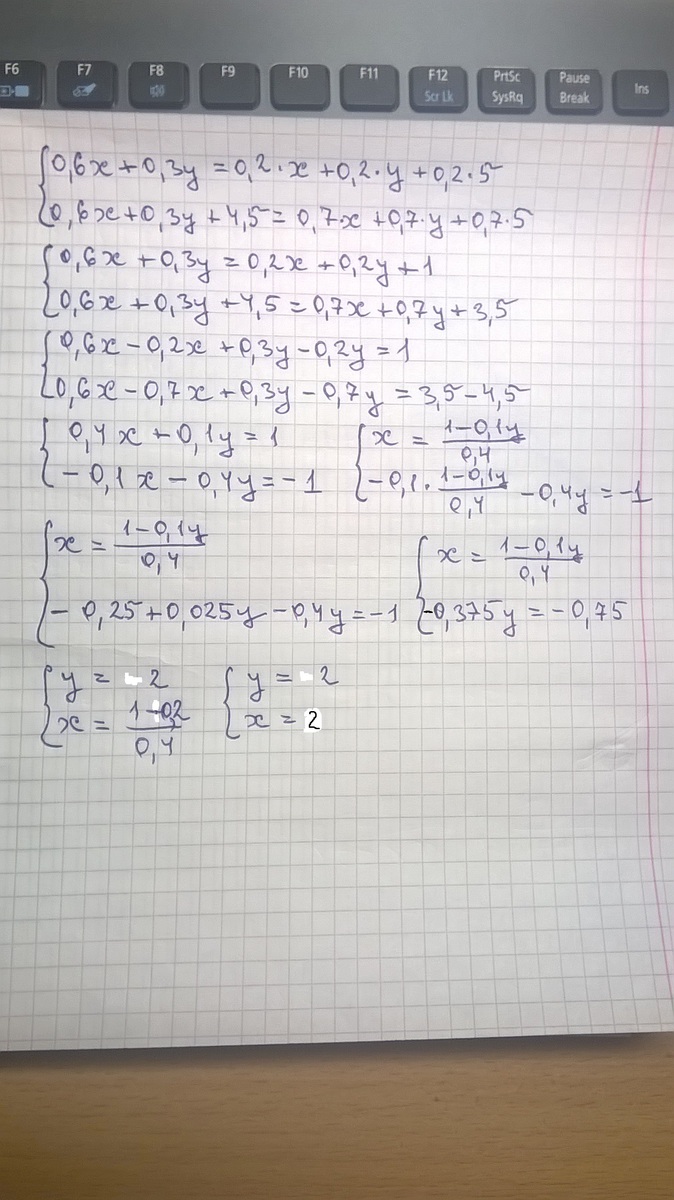 F6 F7 F8 F9 F10 F11 F12 PrtSc Pause Ins
Scr Lk SysRq Break
0,6x + 0,3y = 0,2·x + 0,2·y + 0,2·5
0,6x + 0,3y + 4,5 = 0,7x + 0,7·y + 0,7·5
0,6x + 0,3y = 0,2x + 0,2y + 1
0,6x + 0,3y + 4,5 = 0,7x + 0,7y + 3,5
0,6x - 0,2x + 0,3y - 0,2y = 1
0,6x - 0,7x + 0,3y - 0,7y = 3,5 - 4,5
0,4x + 0,1y = 1
- 0,1x - 0,4y = - 1
x = (1-0,1y)/0,4
-0,1 · (1-0,1y)/0,4 - 0,4y = -1
x = (1-0,1y)/0,4
- 0,25 + 0,025y - 0,4y = -1
x = (1-0,1y)/0,4
-0,375y = - 0,75
y = 2
x = (1-0,2)/0,4
y = 2
x = 2